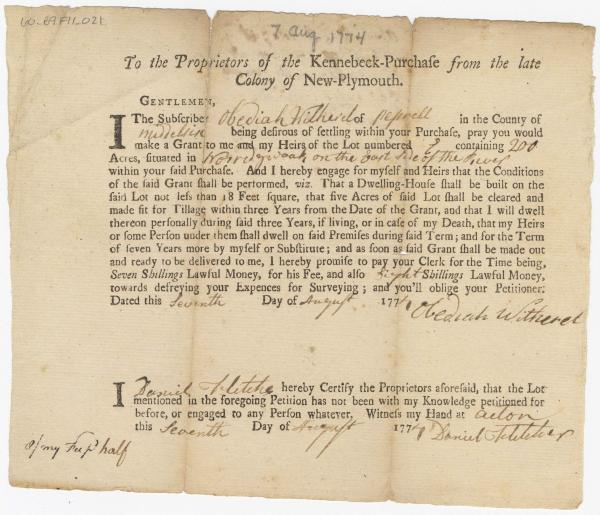 60.69F11.021
7 Aug 1774
To the Proprietors of the Kennebeck-Purchaſe from the late
Colony of New-Plymouth.
GENTLEMEN,
I The Subſcriber Obediah Witherel of Peprell in the County of
Middelsix being deſirous of ſettling within your Purchaſe, pray you would
make a Grant to me and my Heirs of the Lot numbered containing 200
Acres, ſituated in Norridgwoak on the East Side of the River
within your ſaid Purchaſe. And I hereby engage for myſelf and Heirs that the Conditions
of the ſaid Grant ſhall be performed, viz. That a Dwelling-Houſe ſhall be built on the
ſaid Lot not leſs than 18 Feet ſquare, that five Acres of ſaid Lot ſhall be cleared and
made fit for Tillage within three Years from the Date of the Grant, and that I will dwell
thereon perſonally during ſaid three Years, if living, or in caſe of my Death, that my Heirs
or ſome Perſon under them ſhall dwell on ſaid Premiſes during ſaid Term; and for the Term
of ſeven Years more by myſelf or Subſtitute; and as ſoon as ſaid Grant ſhall be made out
and ready to be delivered to me, I hereby promiſe to pay your Clerk for the Time being,
Seven Shillings Lawful Money, for his Fee, and alſo Eight Shillings Lawful Money,
towards defreying your Expences for Surveying; and you'll oblige your Petitioner.
Dated this Seventh Day of August 1774 Obediah Witherel
I Daniel Fletcher hereby Certify the Proprietors aforeſaid, that the Lot
mentioned in the foregoing Petition has not been with my Knowledge petitioned for
before, or engaged to any Perſon whatever. Witneſs my Hand at Acton
this Seventh Day of August 1774 Daniel Fletcher
my half